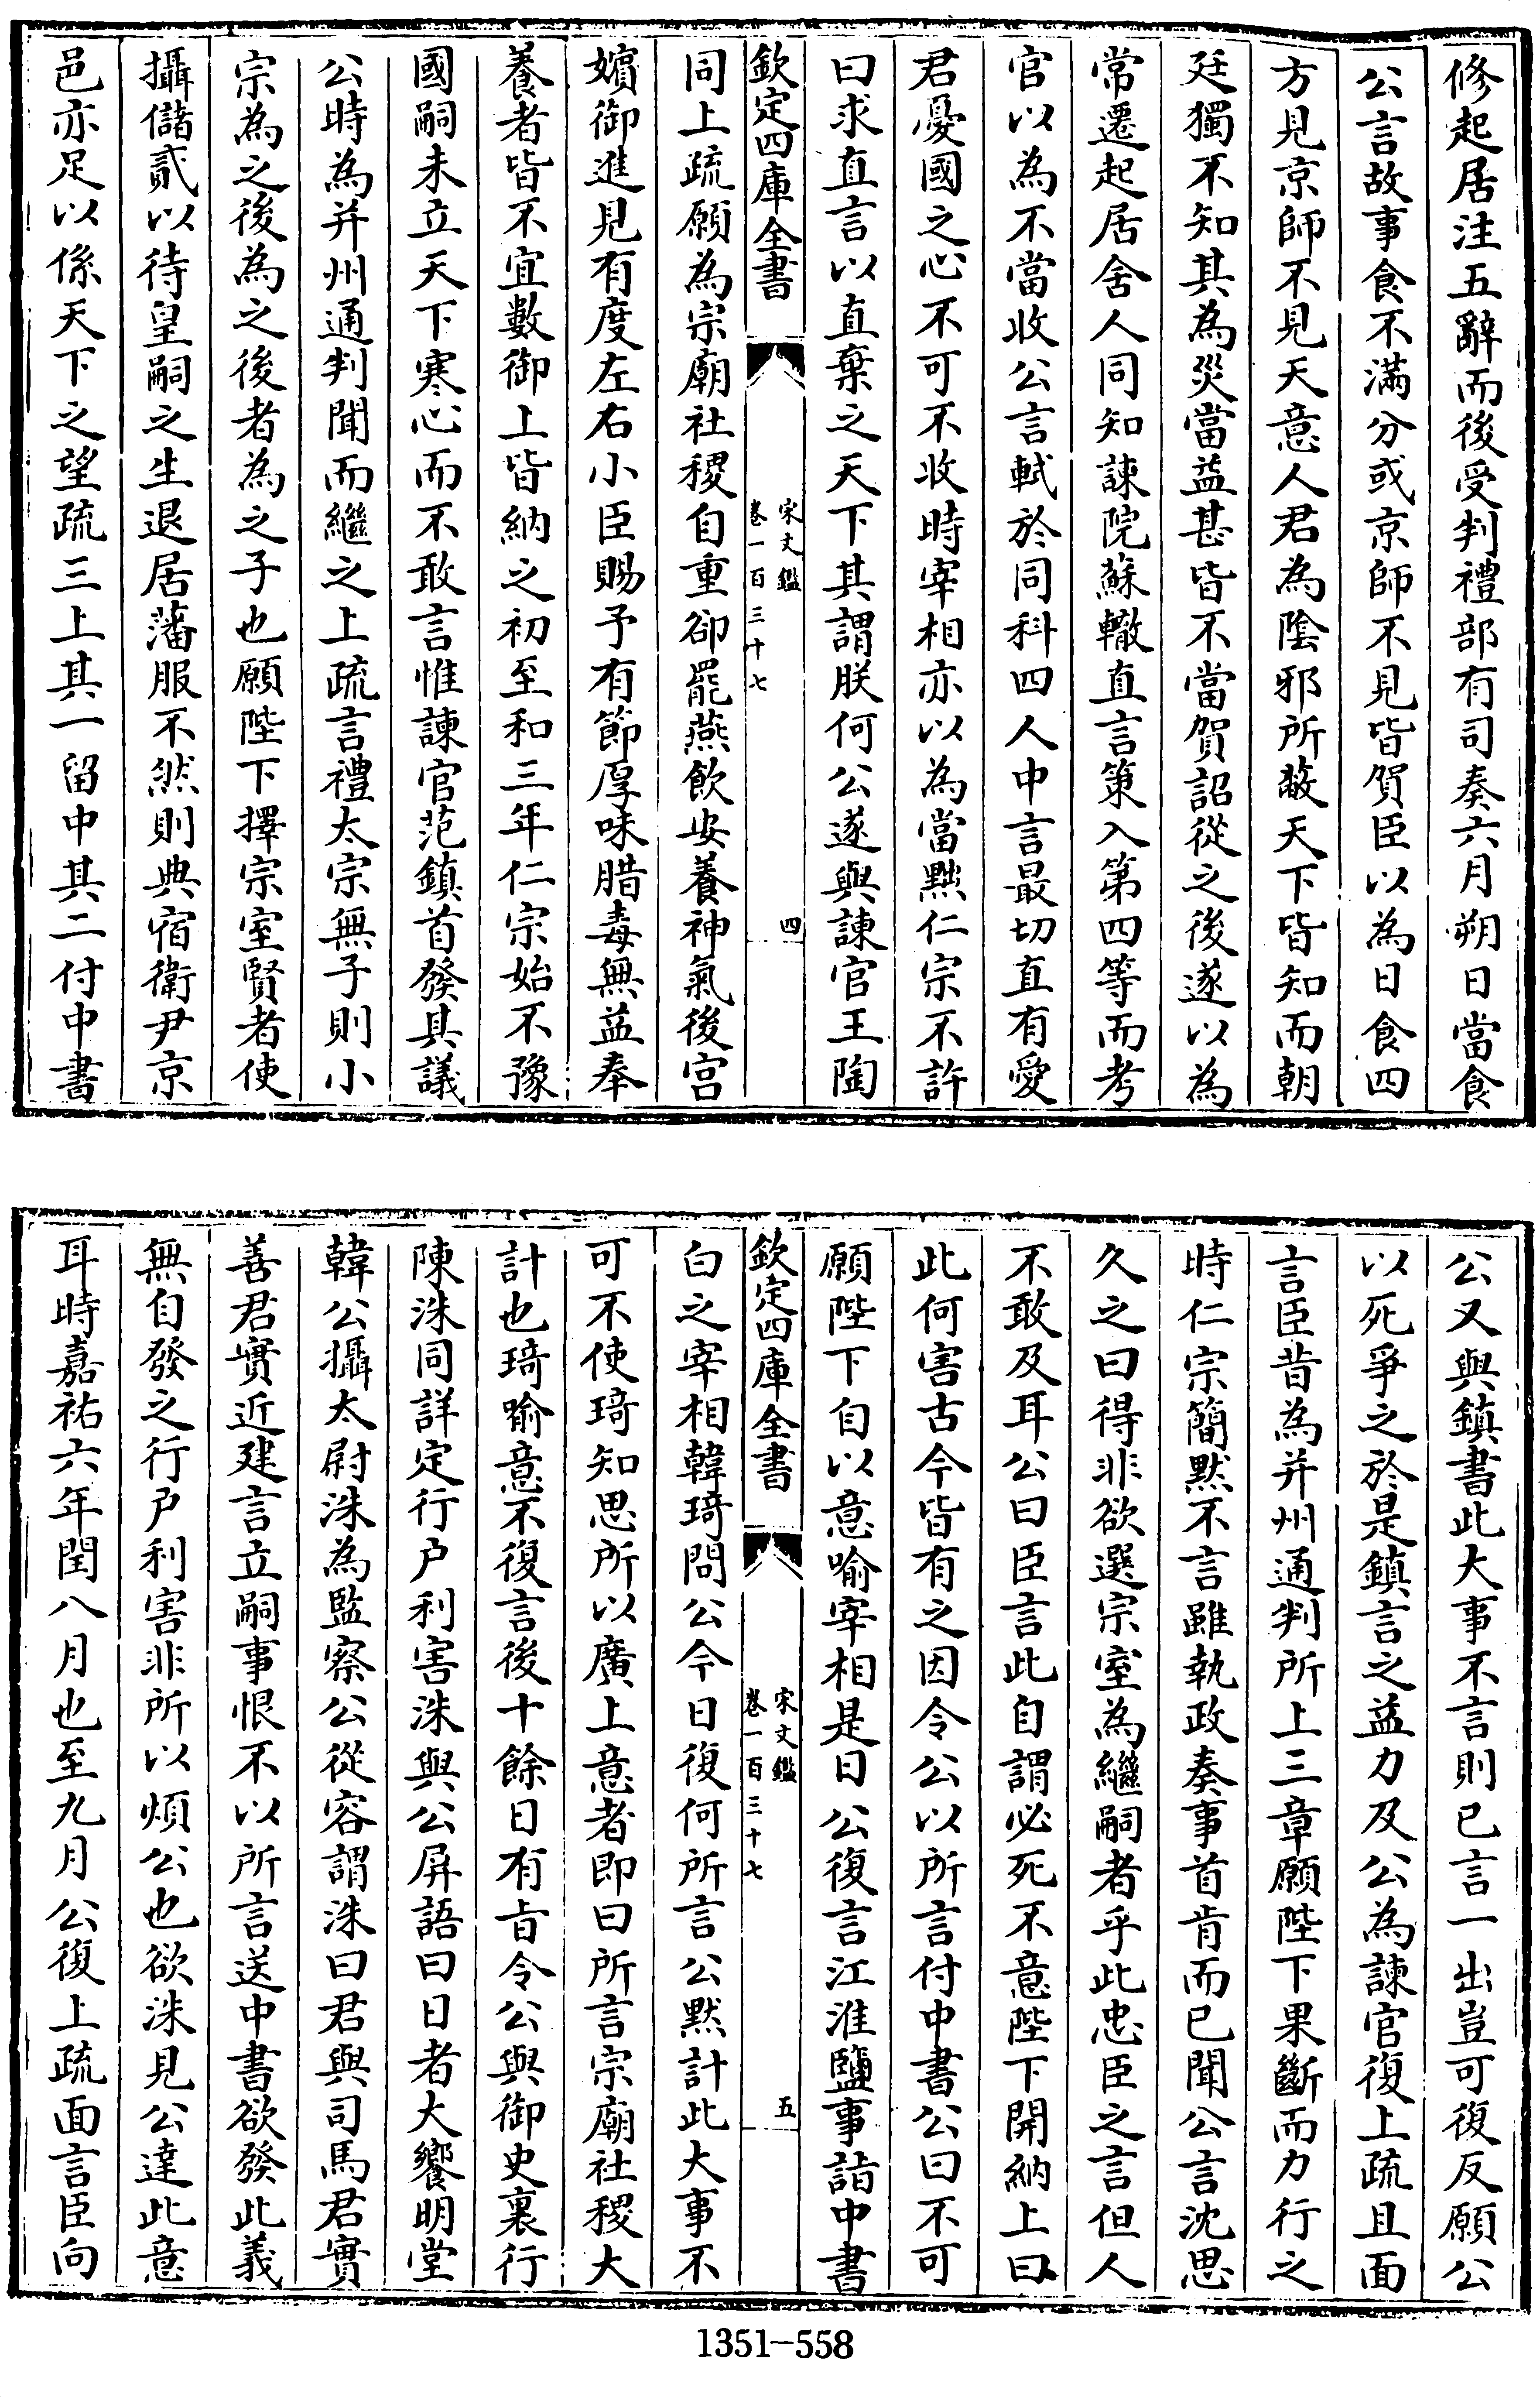 修起居注五辭而後受判禮部有司奏六月朔日當食
公言故事食不滿分或京師不見皆賀臣以為日食四
方見京師不見天意人君為陰邪所蔽天下皆知而朝
廷獨不知其為災當益甚皆不當賀詔從之後遂以為
常遷起居舍人同知諫院蘇轍直言策入第四等而考
官以為不當收公言軾於同科四人中言最切直有愛
君憂國之心不可不收時宰相亦以為當黜仁宗不許
曰求直言以直棄之天下其謂朕何公遂與諫官王陶
欽定四庫全書
宋文鑑
卷一百三十七
四
同上疏願為宗廟社稷自重卻罷燕飲安養神氣後宮
嬪御進見有度左右小臣賜予有節厚味腊毒無益奉
養者皆不宜數御上皆納之初至和三年仁宗始不豫
國嗣未立天下寒心而不敢言惟諫官范鎮首發其議
公時為并州通判聞而繼之上疏言禮太宗無子則小
宗為之後為之後者為之子也願陛下擇宗室賢者使
攝儲貳以待皇嗣之生退居藩服不然則典宿衛尹京
邑亦足以係天下之望疏三上其一留中其二付中書
公又與鎮書此大事不言則已言一出豈可復反願公
以死爭之於是鎮言之益力及公為諫官復上疏且面
言臣昔為并州通判所上三章願陛下果斷而力行之
時仁宗簡默不言雖執政奏事首肯而已聞公言沈思
久之曰得非欲選宗室為繼嗣者乎此忠臣之言但人
不敢及耳公曰臣言此自謂必死不意陛下開納上曰
此何害古今皆有之因令公以所言付中書公曰不可
願陛下自以意喻宰相是日公復言江淮鹽事詣中書
欽定四庫全書
宋文鑑
卷一百三十七
五
白之宰相韓琦問公今日復何所言公默計此大事不
可不使琦知思所以廣上意者即曰所言宗廟社稷大
計也琦喻意不復言後十餘日有旨令公與御史裏行
陳洙同詳定行户利害洙與公屏語曰日者大饗明堂
韓公攝太尉洙為監察公從容謂洙曰君與司馬君實
善君實近建言立嗣事恨不以所言送中書欲發此義
無自發之行户利害非所以煩公也欲洙見公達此意
耳時嘉祐六年閏八月也至九月公復上疏面言臣向
1351-558